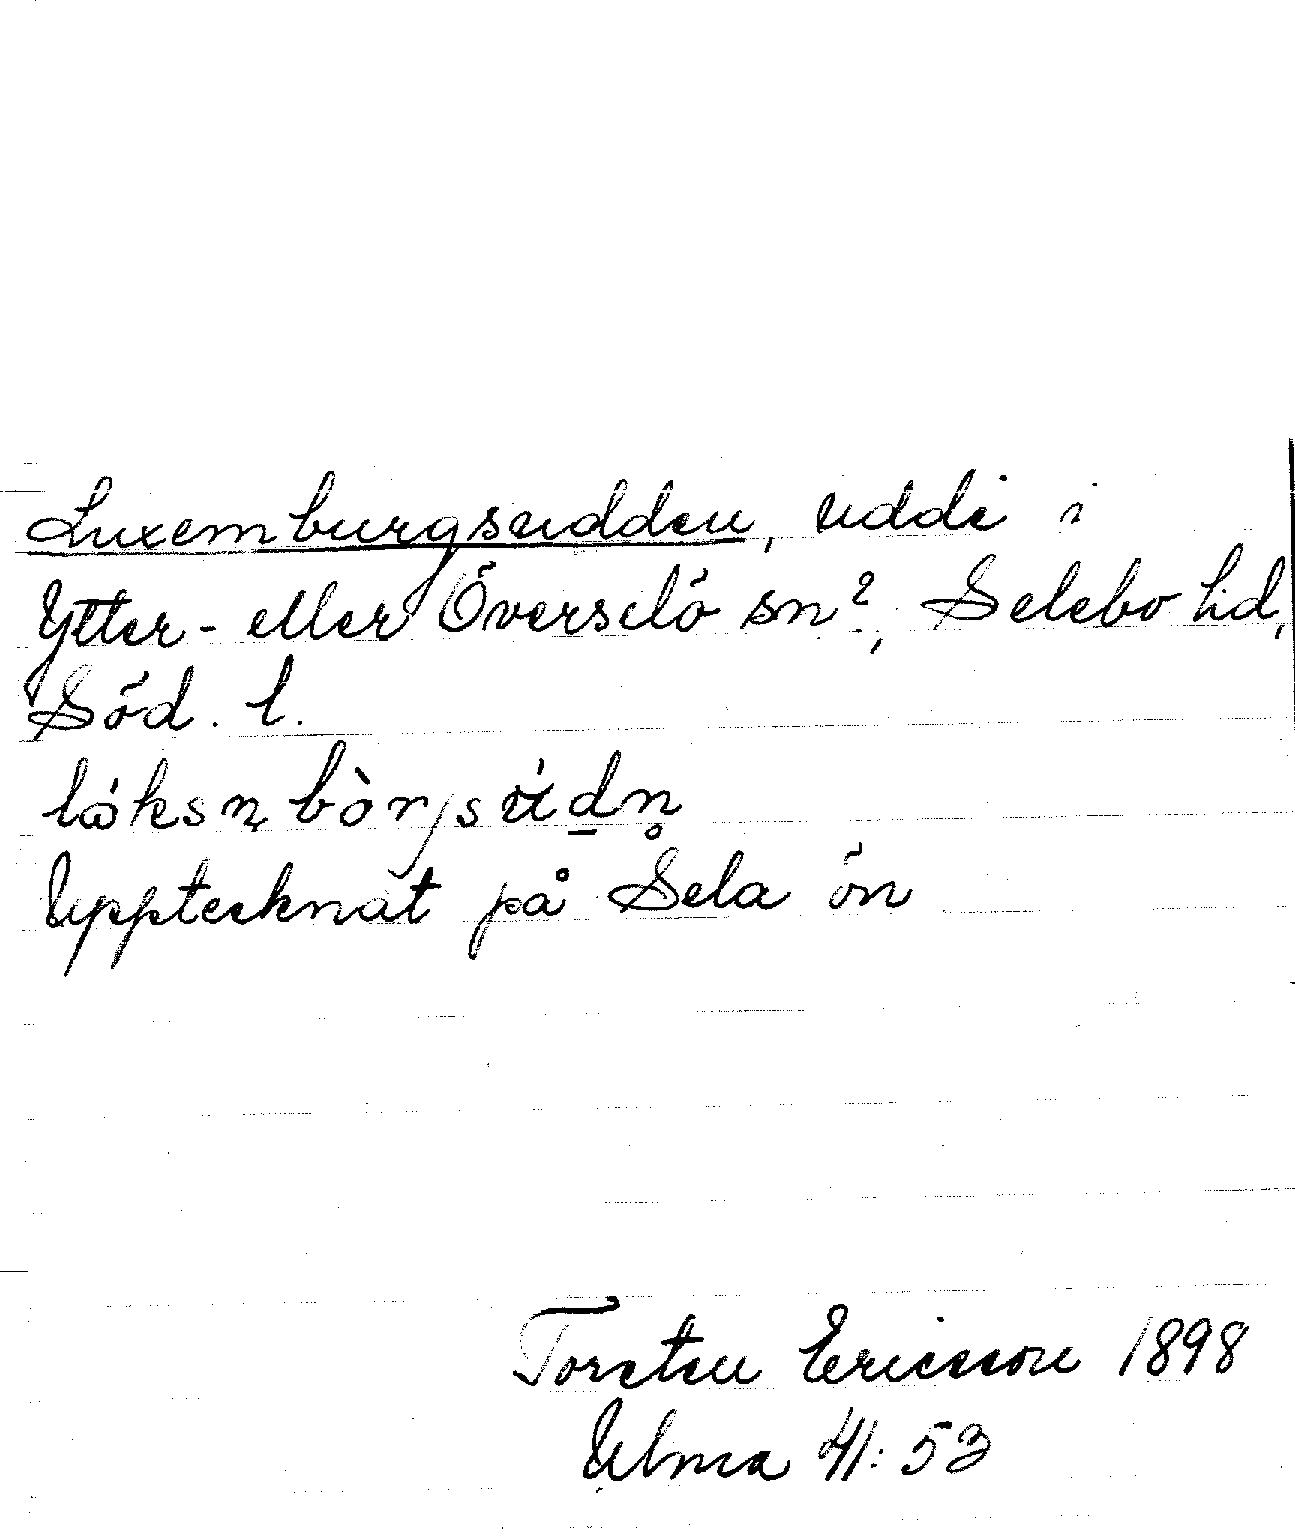 Luxemburgsudden, udde i
Ytter- eller Överselö sn?, Selebo hd,
Söd. l.
Upptecknat på Sela ön
Torsten Ericsson 1898
Ulma 41:53